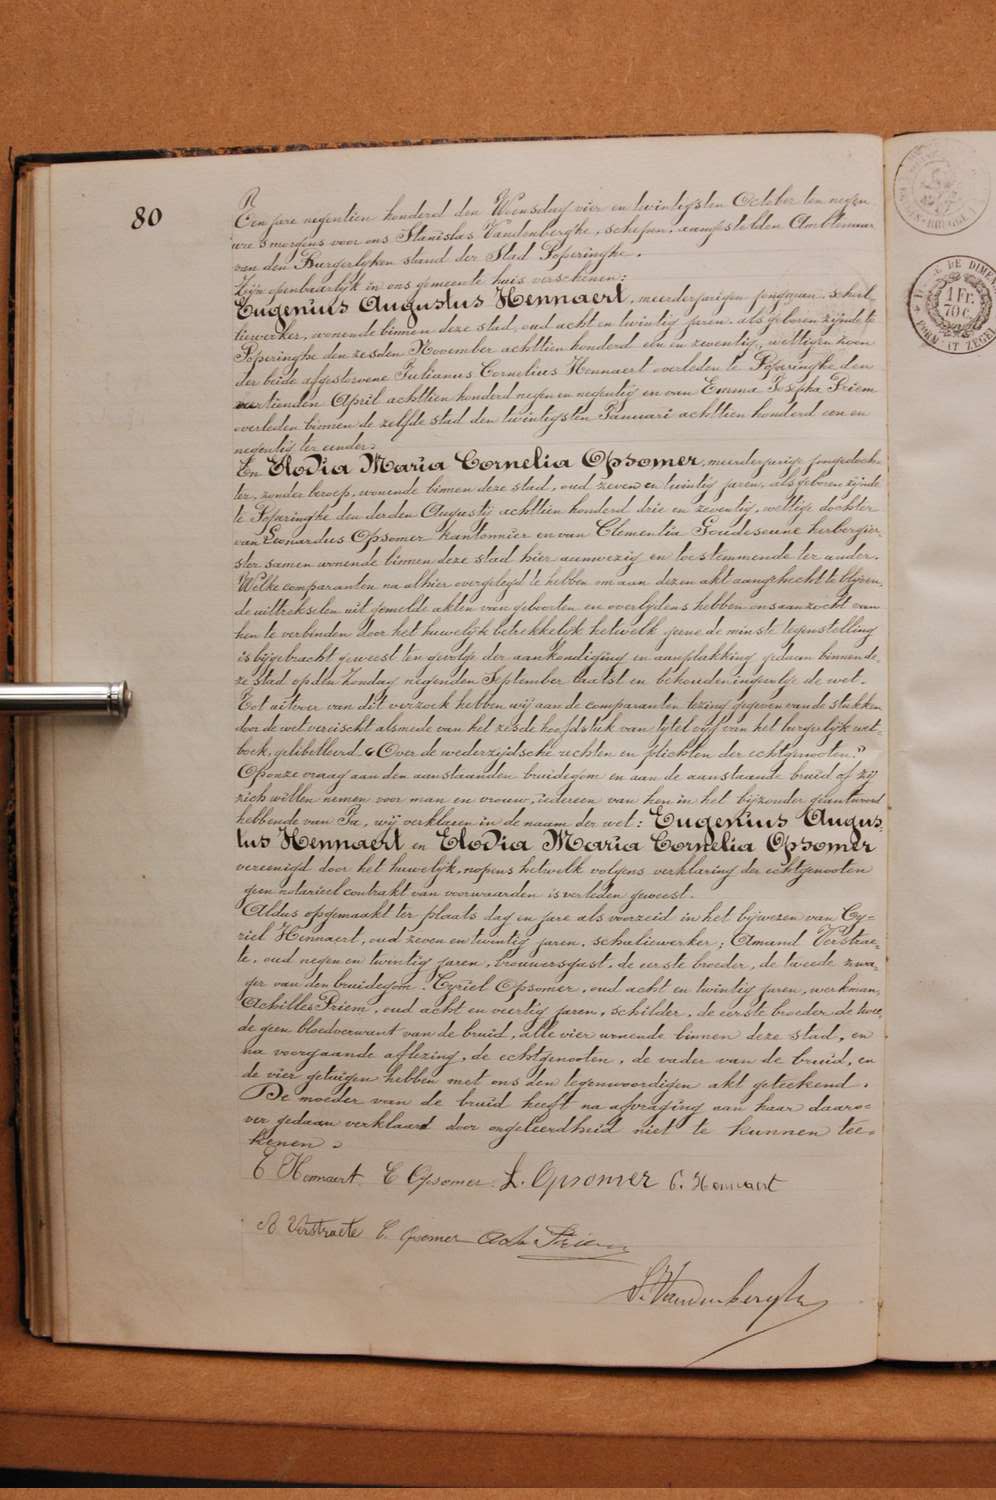 80
Een jare negentien honderd den Woensdag vier en twintigsten October ten negen
ure 's morgens voor ons Stanislas Vandenberghe, schepen, aangestelden Ambtenaar
van den Burgerlyken stand der Stad Poperinghe.
Zijn openbaarlijk in ons gemeente huis verschenen:
Eugenius Augustus Hennaert, meerderjarigen jongman, schal-
liewerker, wonende binnen deze stad, oud acht en twintig jaren, als geboren zijnde te
Poperinghe den zesden November achttien honderd een en zeventig, wettigen zoon
der beide afgestorvene Julianus Cornelius Hennaert overleden te Poperinghe den
veertienden April achttien honderd negen en negentig en van Emma Josepha Priem
overleden binnen de zelfde stad den twintigsten Januari achttien honderd een en
negentig ter eender.
En Elodia Maria Cornelia Opsomer, meerderjarige jongedoch-
ter, zonder beroep, wonende binnen deze stad, oud zeven en twintig jaren, als geboren zijnde
te Poperinghe den derden Augusty achttien honderd drie en zeventig, wettige dochter
van Leonardus Opsomer kantonnier en van Clementia Goudeseune herbergier-
ster samen wonende binnen deze stad hier aanwezig en toestemmende ter ander.
Welke comparanten na alhier overgelegd te hebben om aan dezen akt aangehecht te blijven
de uittrekselen uit gemelde akten van geboorten en overlydens hebben ons aanzocht van
hen te verbinden door het huwelijk betrekkelijk hetwelk geene de minste tegenstelling
is bijgebracht geweest ten gevolge der aankondiging en aanplakking gedaan binnen de-
ze stad op den Zondag negenden September laatst en behoudeningevolge de wet.
Tot uitvoer van dit verzoek hebben wij aan de comparanten lezing gegeven van de stukken
door de wet vereischt alsmede van het zesde hoofdstuk van tytel vyf van het burgerlijk wet-
boek, getitelleerd "Over de wederzijdsche rechten en plichten der echtgenooten."
Op onze vraag aan den aanstaanden bruidegom en aan de aanstaande bruid of zij
zich willen nemen voor man en vrouw, iedereen van hen in het bijzonder geantwoord
hebbende van Ja, wij verklaren in de naam der wet: Eugenius Augus-
tus Hennaert en Elodia Maria Cornelia Opsomer
vereenigd door het huwelijk, nopens hetwelk volgens verklaring der echtgenooten
geen notarieel contrakt van voorwaarden is verleden geweest.
Aldus opgemaakt ter plaats dag en jare als voorzeid in het bijwezen van Cy-
riel Hennaert, oud zeven en twintig jaren, schaliewerker; Amand Verstrae-
te, oud negen en twintig jaren, brouwersgast, de eerste broeder, de tweede zwa-
ger van den bruidegom. Cyriel Opsomer, oud acht en twintig jaren, werkman,
Achilles Priem, oud acht en veertig jaren, schilder, de eerste broeder de twee-
de geen bloedverwant van de bruid, alle vier wonende binnen deze stad, en
na voorgaande aflezing, de echtgenooten, de vader van de bruid, en
de vier getuigen hebben met ons den tegenwoordigen akt geteekend.
De moeder van de bruid heeft na afvraging aan haar daaro-
ver gedaan verklaard door ongeleerdheid niet te kunnen tee-
kenen.
E Hennaert E Opsomer L. Opsomer C. Hennaert
A Verstraete C. Opsomer Ach. Priem
S. Vandenberghe
DE DIMEN
1 Fr.
70 C.
T ZEGEL